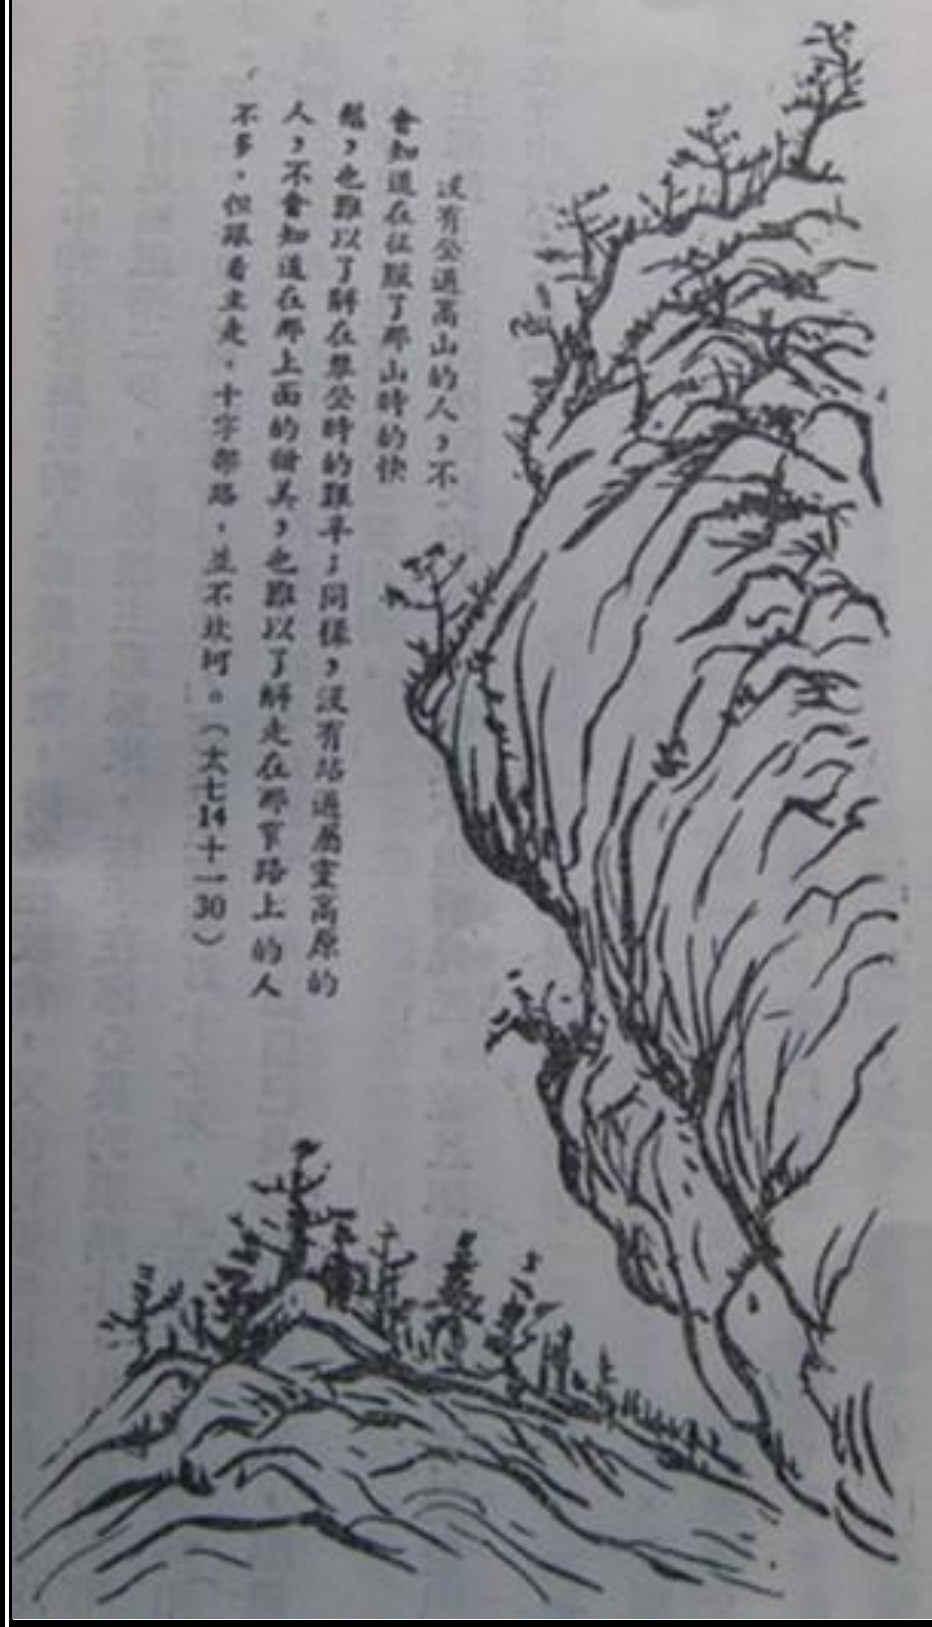 沒有登過高山的人，不
會知道在征服了那山時的快
慰，也難以了解在攀登時的艱辛；同樣，沒有站過屬靈高原的
人，不會知道在那上面的甜美，也難以了解走在那窄路上的人
不多，但跟着主走，十字架路，並不坎坷。（太七14十一30）